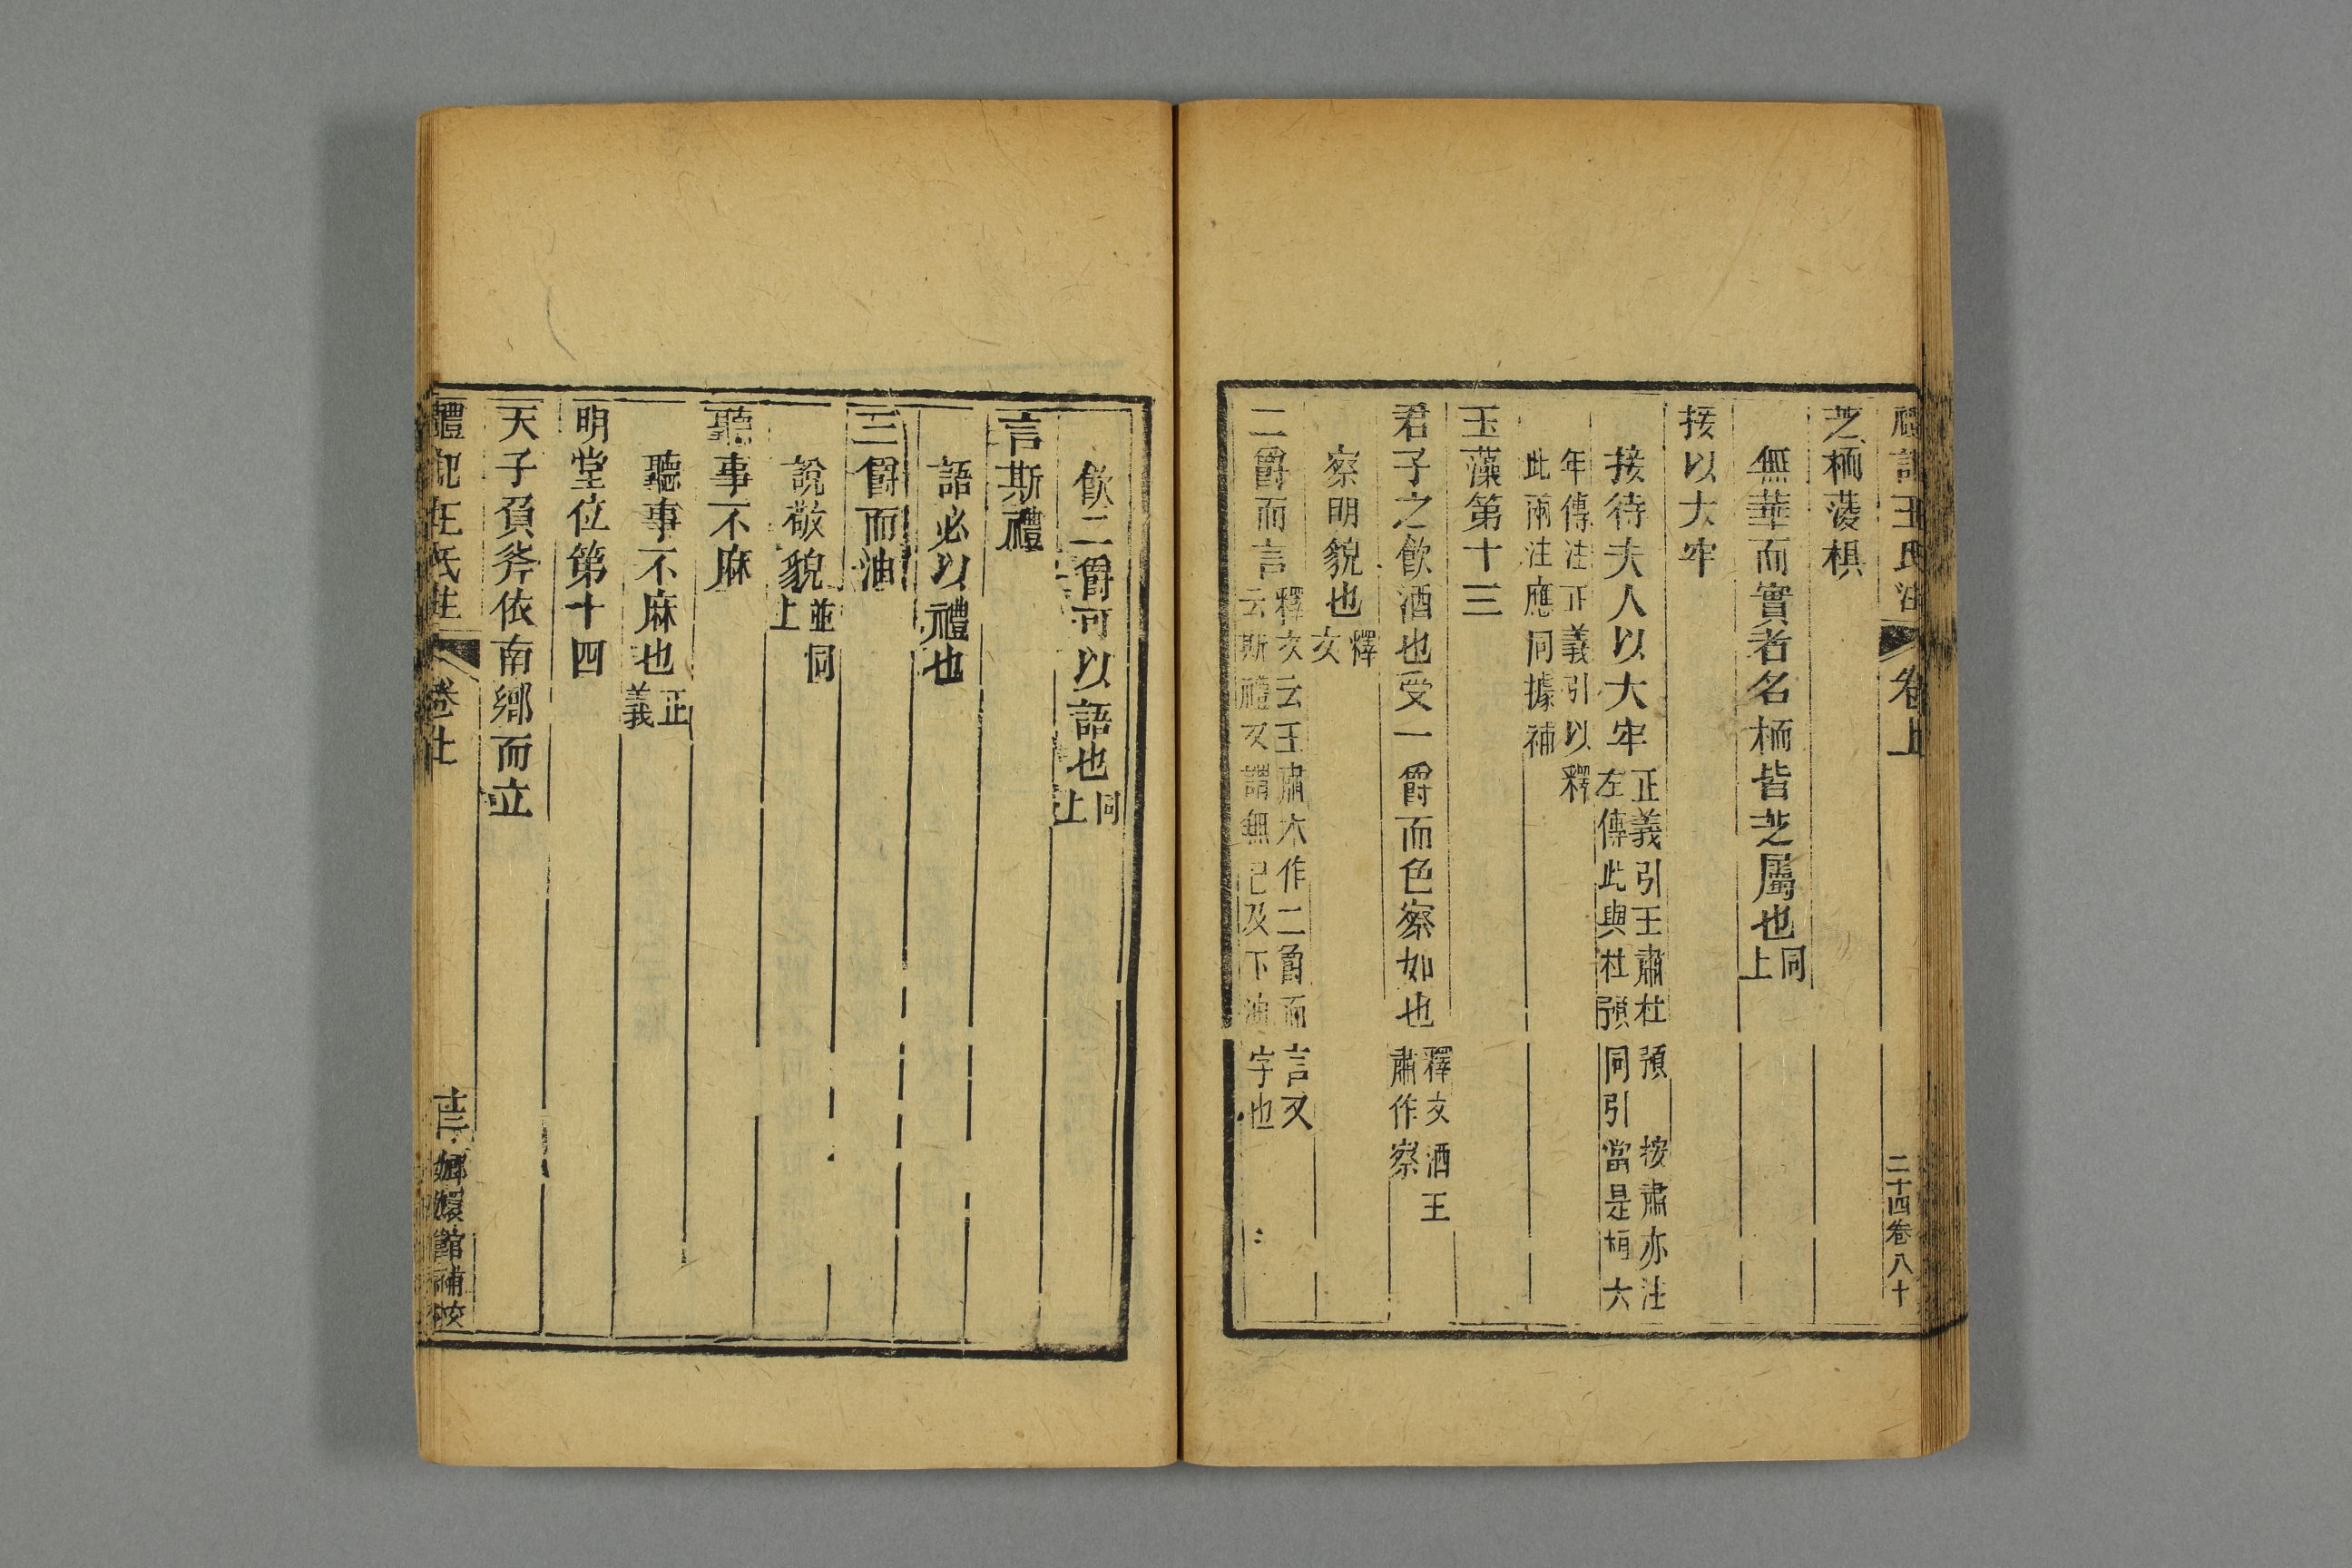 禮記王氏注 卷上 二十四卷八十
芝栭蔆椇
無華而實者名栭皆芝屬也同上
接以大牢
接待夫人以大牢正義引王肅杜預 按肅亦注
左傳此與杜預同引當是桓六
年傳注正義引以釋
此兩注應同據補
玉藻第十三
君子之飲酒也受一爵而色察如也釋文洒王
肅作察
察明貌也釋文
二爵而言釋文云王肅本作二爵而言又
云斯禮又謂無已及下油字也
飲二爵可以語也同上
言斯禮
語必以禮也
三爵而油
說敬貌並同上
聽事不麻
聽事不麻也正義
明堂位第十四
天子負斧依南鄉而立
禮記王氏注 卷上 十三 嫏嬛館補校